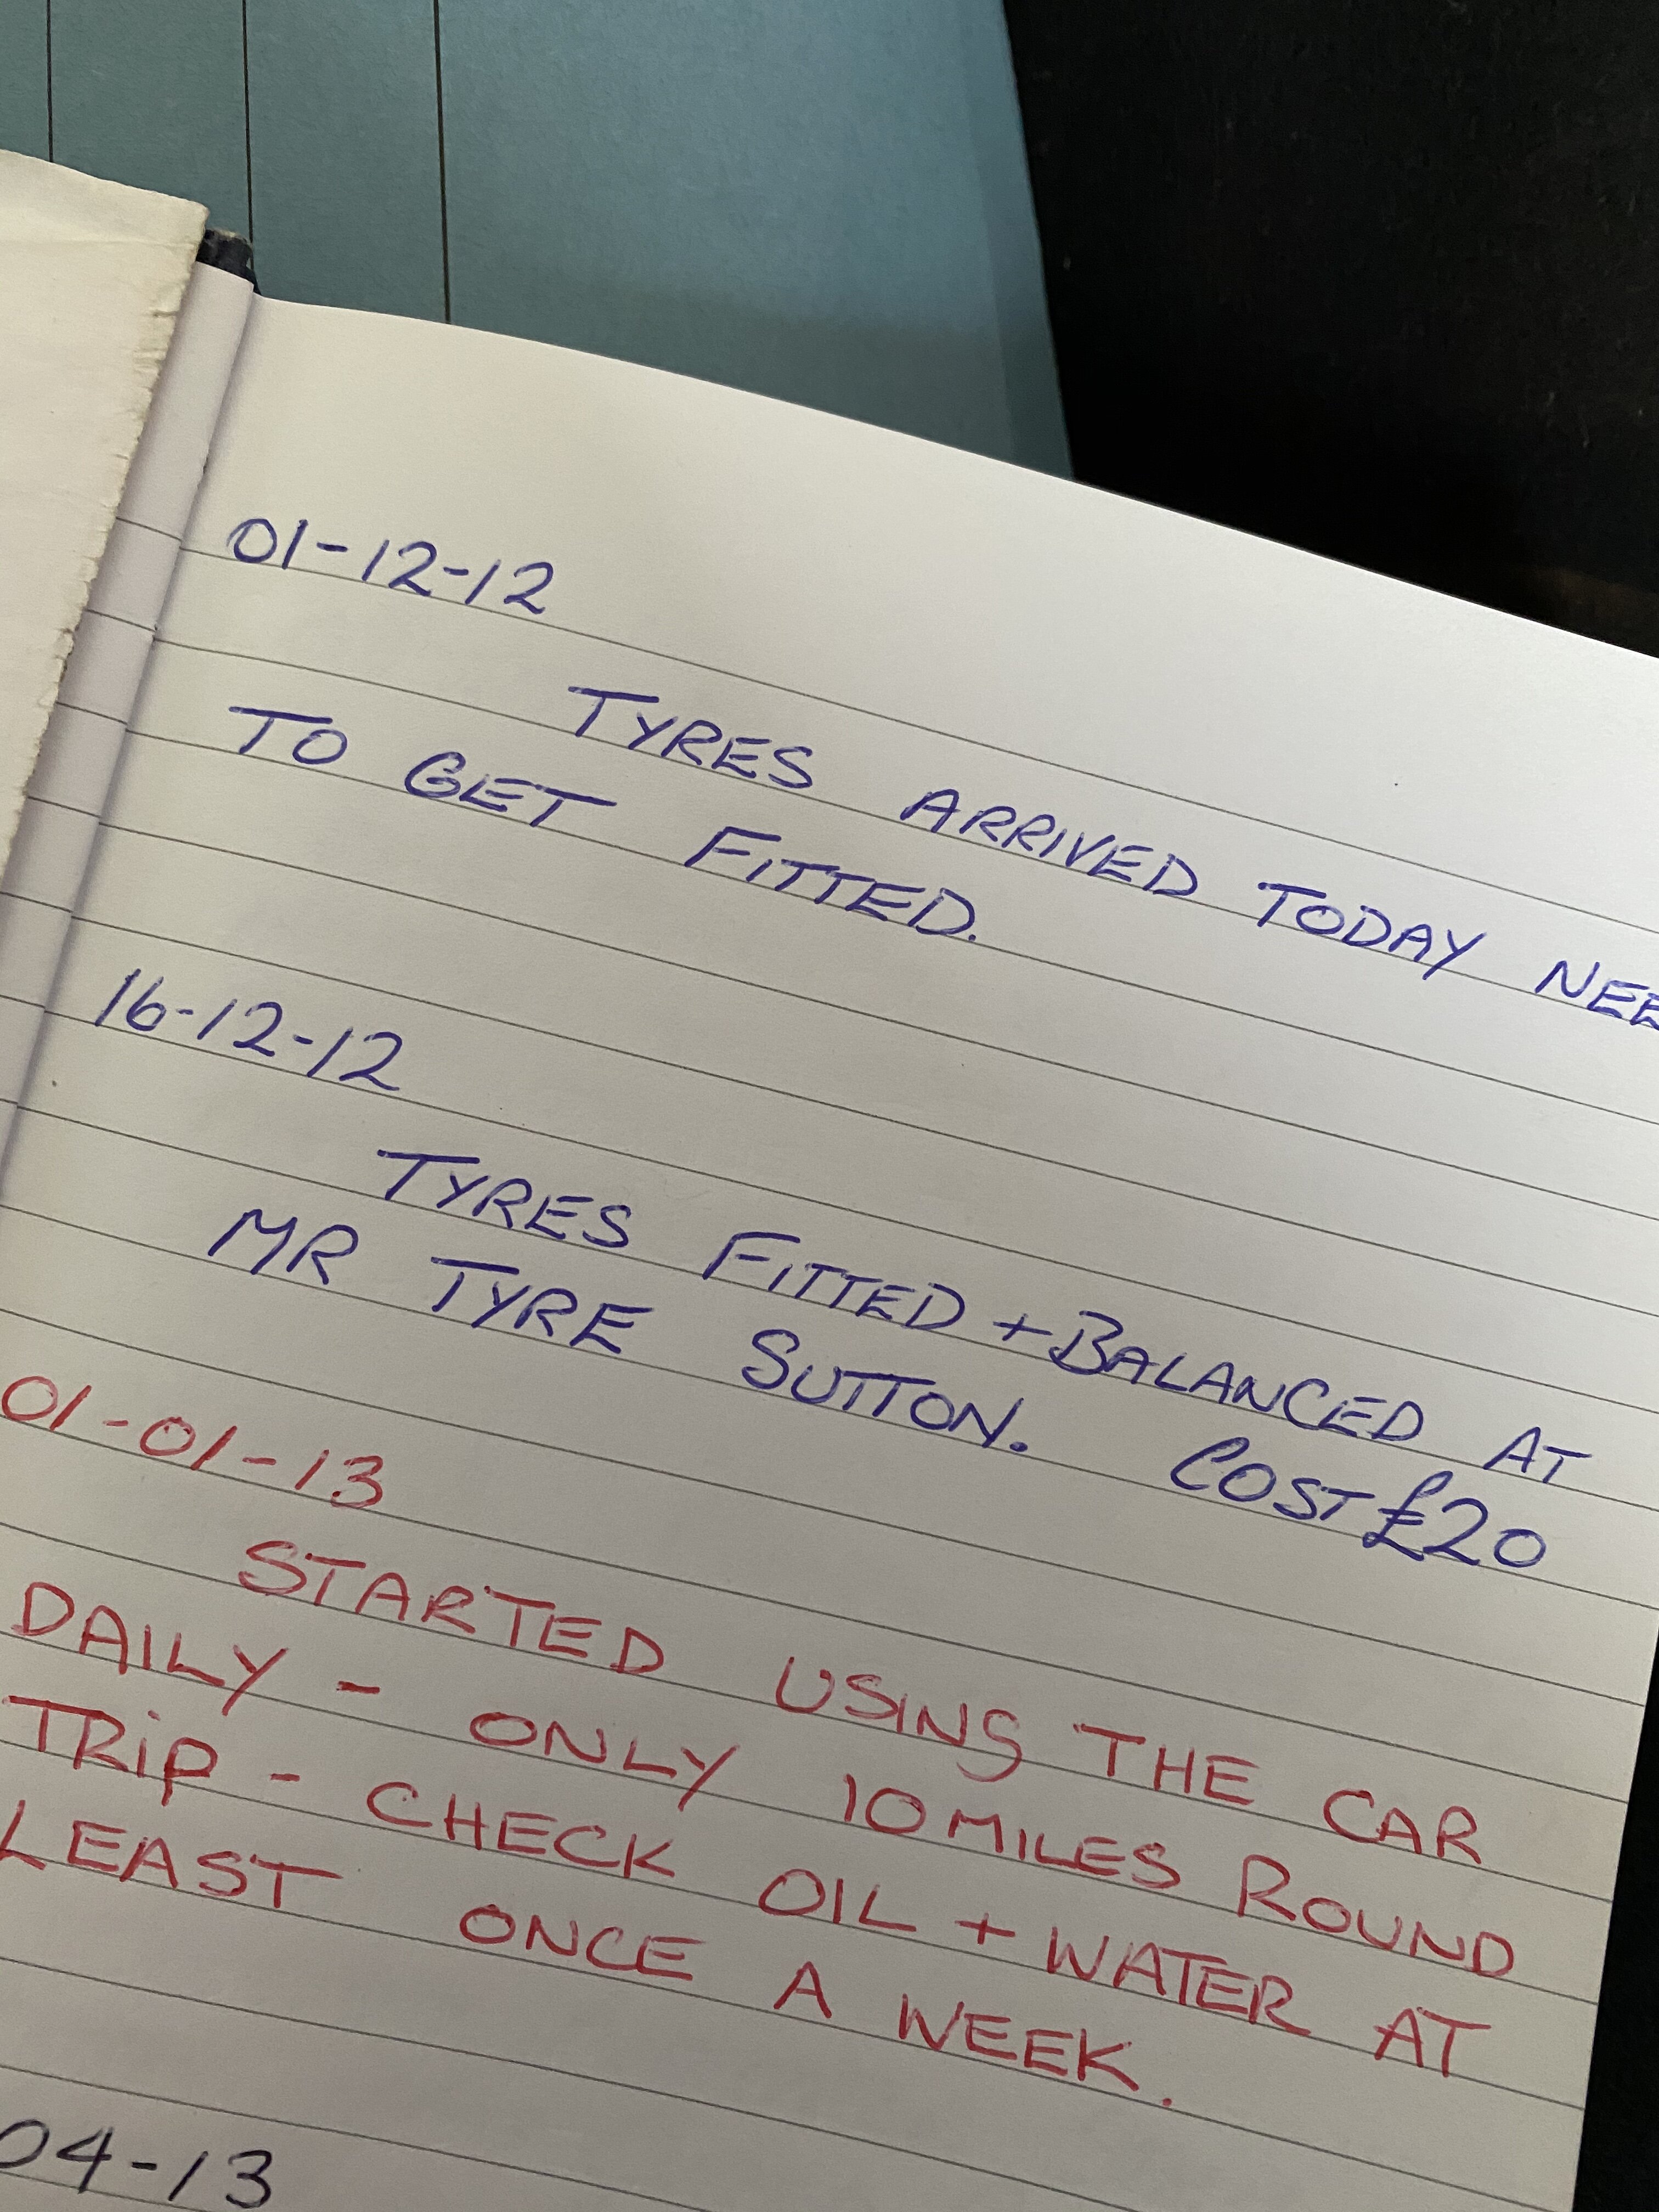 01-12-12
TYRES ARRIVED TODAY NEE
TO GET FITTED.
16-12-12
TYRES FITTED + BALANCED AT
MR TYRE SUTTON. COST £20
01-01-13
STARTED USING THE CAR
DAILY - ONLY 10 MILES ROUND
TRIP - CHECK OIL + WATER AT
LEAST ONCE A WEEK.
04-13